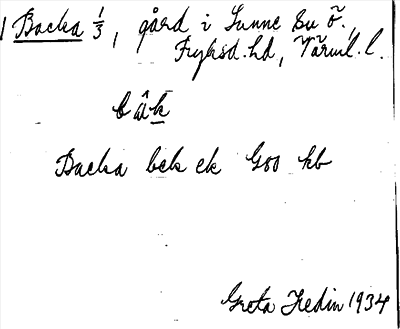 Backa 1/3, gård i Sunne su ö.,
Fryksd. hd, Värml. l.
b å k
Backa bck ek Goo kb
Greta Hedin 1934